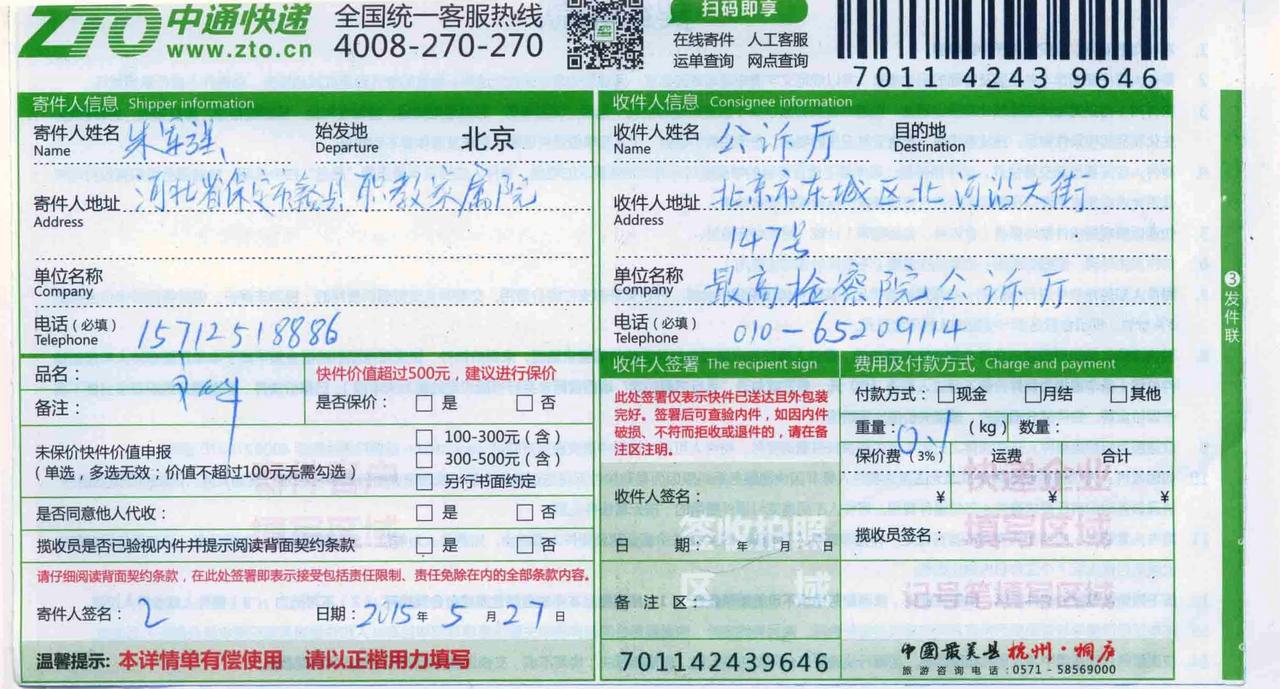 ZTO 中通快递
www.zto.cn
全国统一客服热线
4008-270-270
扫码即享
在线寄件 人工客服
运单查询 网点查询
7011 4243 9646
寄件人信息 Shipper information
寄件人姓名 Name
始发地 Departure 北京
寄件人地址 Address 河北省保定市蠡县职教家属院
单位名称 Company
电话（必填） Telephone 15712518886
收件人信息 Consignee information
收件人姓名 Name 公诉厅
目的地 Destination
收件人地址 Address 北京市东城区北河沿大街
147号
单位名称 Company 最高检察院公诉厅
电话（必填） Telephone 010-65209114
品名：
备注：
快件价值超过500元，建议进行保价
是否保价： 是 否
未保价快件价值申报
（单选，多选无效；价值不超过100元无需勾选）
100-300元（含）
300-500元（含）
另行书面约定
是否同意他人代收： 是 否
揽收员是否已验视内件并提示阅读背面契约条款 是 否
请仔细阅读背面契约条款，在此处签署即表示接受包括责任限制、责任免除在内的全部条款内容。
寄件人签名： 日期：2015年 5月27日
收件人签署 The recipient sign
此处签署仅表示快件已送达且外包装
完好。签署后可查验内件，如因内件
破损、不符而拒收或退件的，请在备
注区注明。
收件人签名：
签收拍照
日 期： 年 月 日
区 域
备 注 区：
费用及付款方式 Charge and payment
付款方式： 现金 月结 其他
重量：0.1（kg）数量：
保价费（3%） 运费 合计
¥ ¥ ¥
快递企业
填写区域
揽收员签名：
记号笔填写区域
温馨提示：本详情单有偿使用 请以正楷用力填写
701142439646
中国最美县 杭州·桐庐
旅游咨询电话：0571-58569000
3 发件联